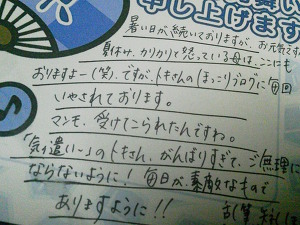 申し上げます
暑い日が続いておりますが、お元気です
夏休み、カリカリと怒っている母は、ここにも
おりますよー(笑)、ですが、トキさんのほっこりブログに毎回
いやされております。
マンモ、受けてこられたんですね。
「気遣いー」のトキさん、がんばりすぎて、ご無理に
ならないように！毎日が、素敵なもので
ありますように!!
乱筆